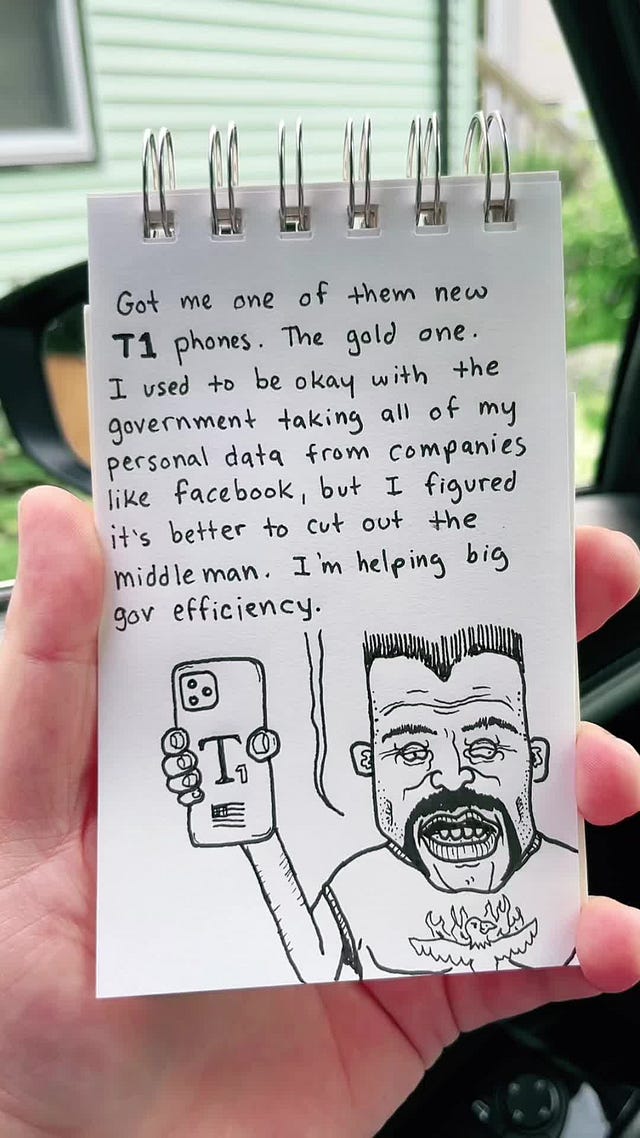 Got me one of them new
T1 phones. The gold one.
I used to be okay with the
government taking all of my
personal data from companies
like facebook, but I figured
it's better to cut out the
middle man. I'm helping big
gov efficiency.
T1